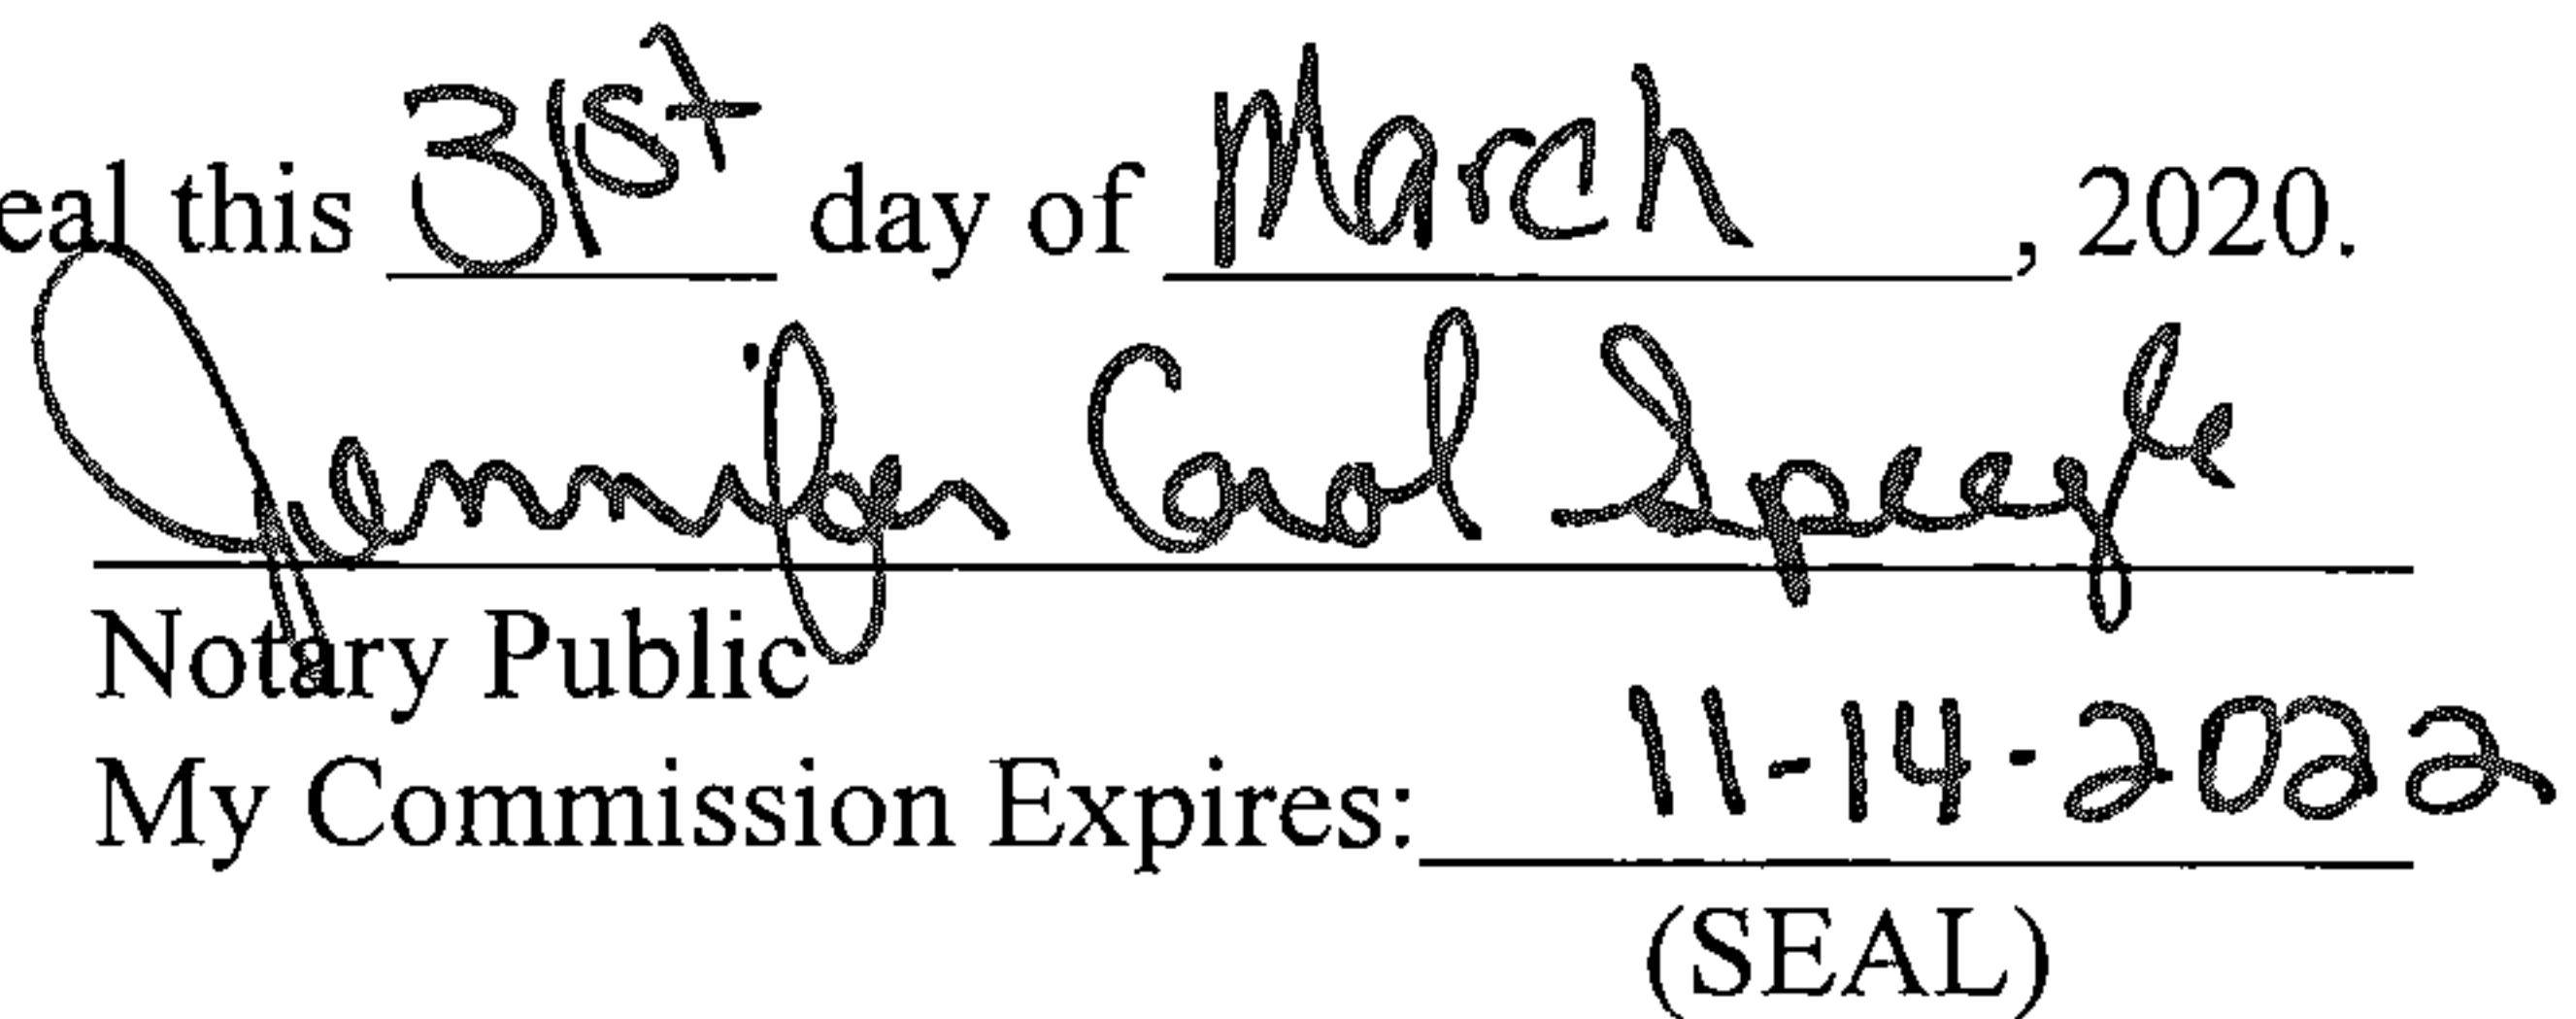 eal this 31st day of March, 2020.
Jennifer Carol
Notary Public
My Commission Expires: 11-14-2022
(SEAL)